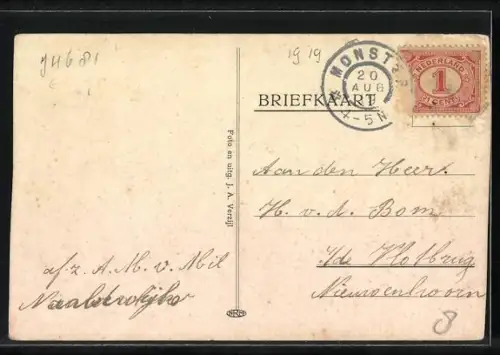 J4681
19 19
MONSTER
20
AUG
4-5N
NEDERLAND
1
CENT
BRIEFKAART
Foto en uitg. J. A. Verzijl
Aan den Heer
H. v. d. Bom
Nieuwenhoorn
afz. A. M. v. Mil
Naaldwijk
8